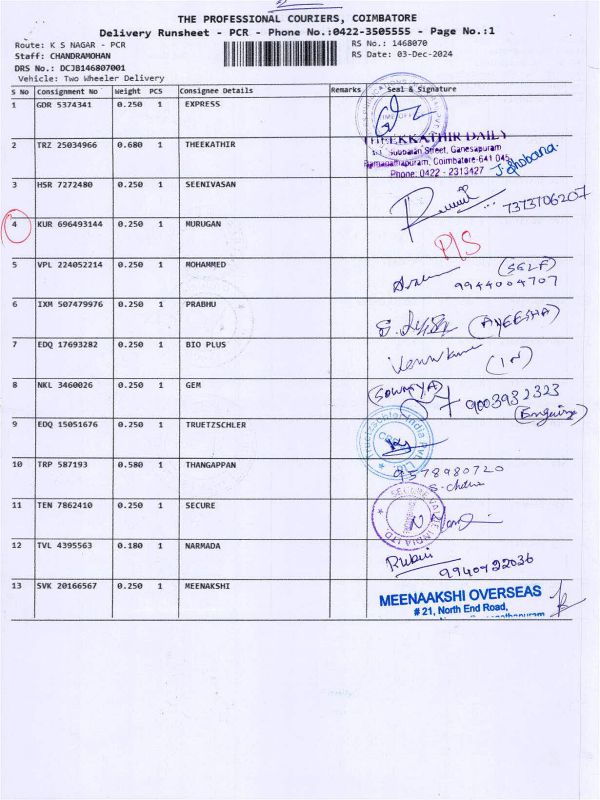 THE PROFESSIONAL COURIERS, COIMBATORE
Delivery Runsheet - PCR - Phone No.:0422-3505555 - Page No.:1
Route: K S NAGAR - PCR RS No.: 1468070
Staff: CHANDRAMOHAN RS Date: 03-Dec-2024
DRS No.: DCJB146807001
Vehicle: Two Wheeler Delivery
S No Consignment No Weight PCS Consignee Details Remarks Seal & Signature
1 GDR 5374341 0.250 1 EXPRESS
2 TRZ 25034966 0.680 1 THEEKATHIR
THEEKKATHIR DAILY
Street, Ganesapuram
Ramanathapuram, Coimbatore-641 045
Phone: 0422 - 2313427
3 HSR 7272480 0.250 1 SEENIVASAN
7373706207
4 KUR 696493144 0.250 1 MURUGAN P/S
5 VPL 224052214 0.250 1 MOHAMMED (SELF)
9944004707
6 IXM 507479976 0.250 1 PRABHU (AYEESHA)
7 EDQ 17693282 0.250 1 BIO PLUS (IN)
8 NKL 3460026 0.250 1 GEM (SOWMYA) 9003932323
9 EDQ 15051676 0.250 1 TRUETZSCHLER
10 TRP 587193 0.580 1 THANGAPPAN 9578980720
11 TEN 7862410 0.250 1 SECURE
12 TVL 4395563 0.180 1 NARMADA
13 SVK 20166567 0.250 1 MEENAKSHI
MEENAAKSHI OVERSEAS
# 21, North End Road,